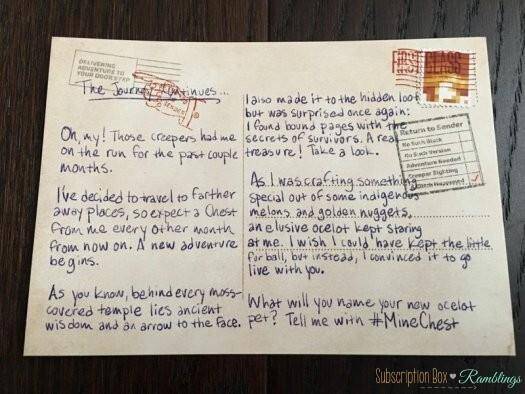 DELIVERING
ADVENTURE TO
YOUR DOORSTEP
The Journey Continues...
Oh, my! Those creepers had me
on the run for the past couple
months.
I've decided to travel to farther
away places, so expect a Chest
from me every other month
from now on. A new adventure
begins.
As you know, behind every moss-
covered temple lies ancient
wisdom and an arrow to the face.
I also made it to the hidden loot
but was surprised once again:
I found bound pages with the
secrets of survivors. A real
treasure! Take a look.
As I was crafting something
special out of some indigenous
melons and golden nuggets,
an elusive ocelot kept staring
at me. I wish I could have kept the little
fur ball, but instead, I convinced it to go
live with you.
What will you name your new ocelot
pet? Tell me with #MineChest
FIRST CLASS
Return to Sender
No Such Block
No Such Version
Adventure Needed
Creeper Sighting
Glitch Happened
Subscription Box Ramblings